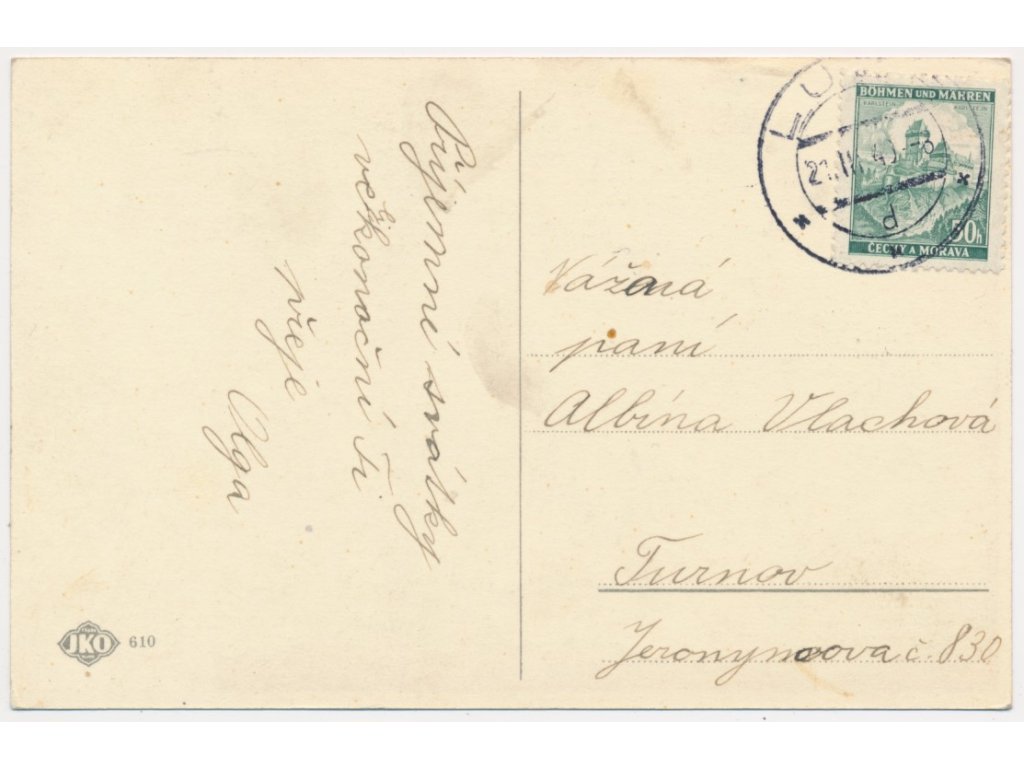 Příjemné svátky
velikonoční Ti
přeje
Olga
JKO 610
BÖHMEN UND MÄHREN
KARLSTEIN KARLŠTEJN
50h
ČECHY A MORAVA
d
Vážená
paní
Albína Vlachová
Turnov
Jeronymova č. 830